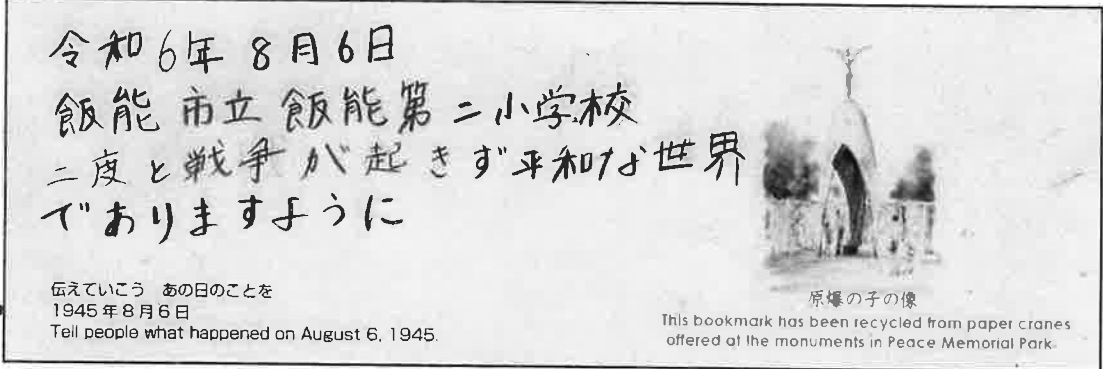 令和6年8月6日
飯能市立飯能第二小学校
二度と戦争が起きず平和な世界
でありますように
伝えていこう　あの日のことを
1945年8月6日
Tell people what happened on August 6, 1945.
原爆の子の像
This bookmark has been recycled from paper cranes
offered at the monuments in Peace Memorial Park.